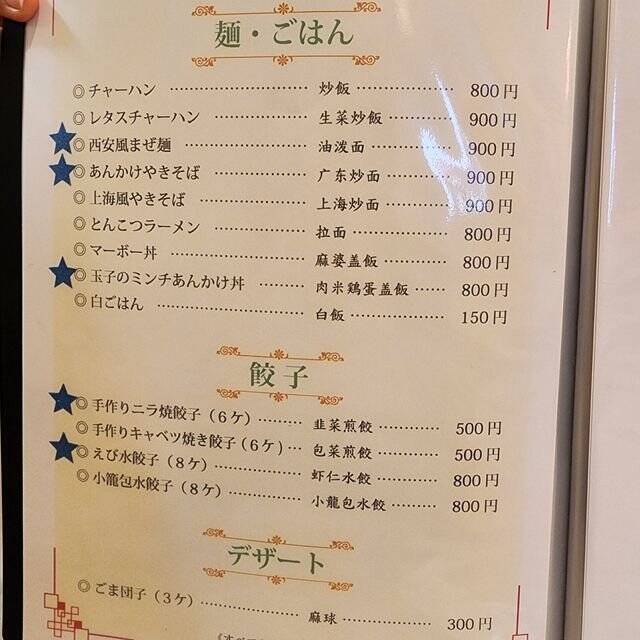 麺・ごはん
◎チャーハン ……………… 炒飯 ……………… 800円
◎レタスチャーハン ……………… 生菜炒飯 ……… 900円
★◎西安風まぜ麺 ……………… 油泼面 ……… 900円
★◎あんかけやきそば ……………… 广东炒面 ……… 900円
◎上海風やきそば ……………… 上海炒面 ……… 900円
◎とんこつラーメン ……………… 拉面 ……………… 800円
◎マーボー丼 ……………… 麻婆盖飯 ……… 800円
★◎玉子のミンチあんかけ丼 ……… 肉米鶏蛋盖飯 …… 800円
◎白ごはん ……………… 白飯 ……………… 150円
餃子
★◎手作りニラ焼餃子（6ケ）……… 韭菜煎餃 ……… 500円
◎手作りキャベツ焼き餃子（6ケ）… 包菜煎餃 ……… 500円
★◎えび水餃子（8ケ）……………… 虾仁水餃 ……… 800円
◎小籠包水餃子（8ケ）……………… 小龍包水餃 ……… 800円
デザート
◎ごま団子（3ケ）……………… 麻球 ……………… 300円